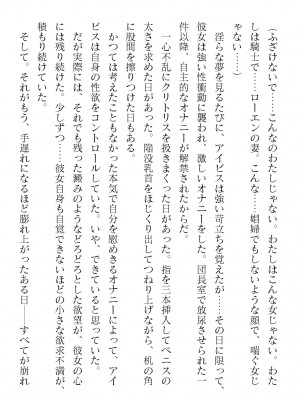 （ふざけないで……こんなのわたしじゃない……。わた
しは騎士で……ローエンの妻。わたしはこんな女じゃない。
じゃない……）
こんな……娼婦でもしないような顔で、喘ぐ女じ
淫らな夢を見るたびに、アイビスは強い苛立ちを覚えたが……その日に限って、
彼女は強い性衝動に襲われ、激しいオナニーをした。団長室で放尿させられた一
件以降、自主的なオナニーが解禁されたからだ。
一心不乱にクリトリスを扱きまくった日があった。指を三本挿入してペニスの
太さを求めた日があった。陥没乳首をほじくり出してつねり上げながら、机の角
に股間を擦りつけた日もある。
かつては考えたこともなかった本気で自分を慰めきるオナニーによって、アイ
ビスは自身の性欲をコントロールしていた。いや、できていると思っていた。
だが実際には、それでも残った澱みのようなどろどろとした欲望が、彼女の心
には残り続けた。少しずつ……彼女自身も自覚できないほどの小さな欲求不満が、
積もり続けていた。
そして。それがもう、手遅れになるほど膨れ上がったある日――すべてが崩れ